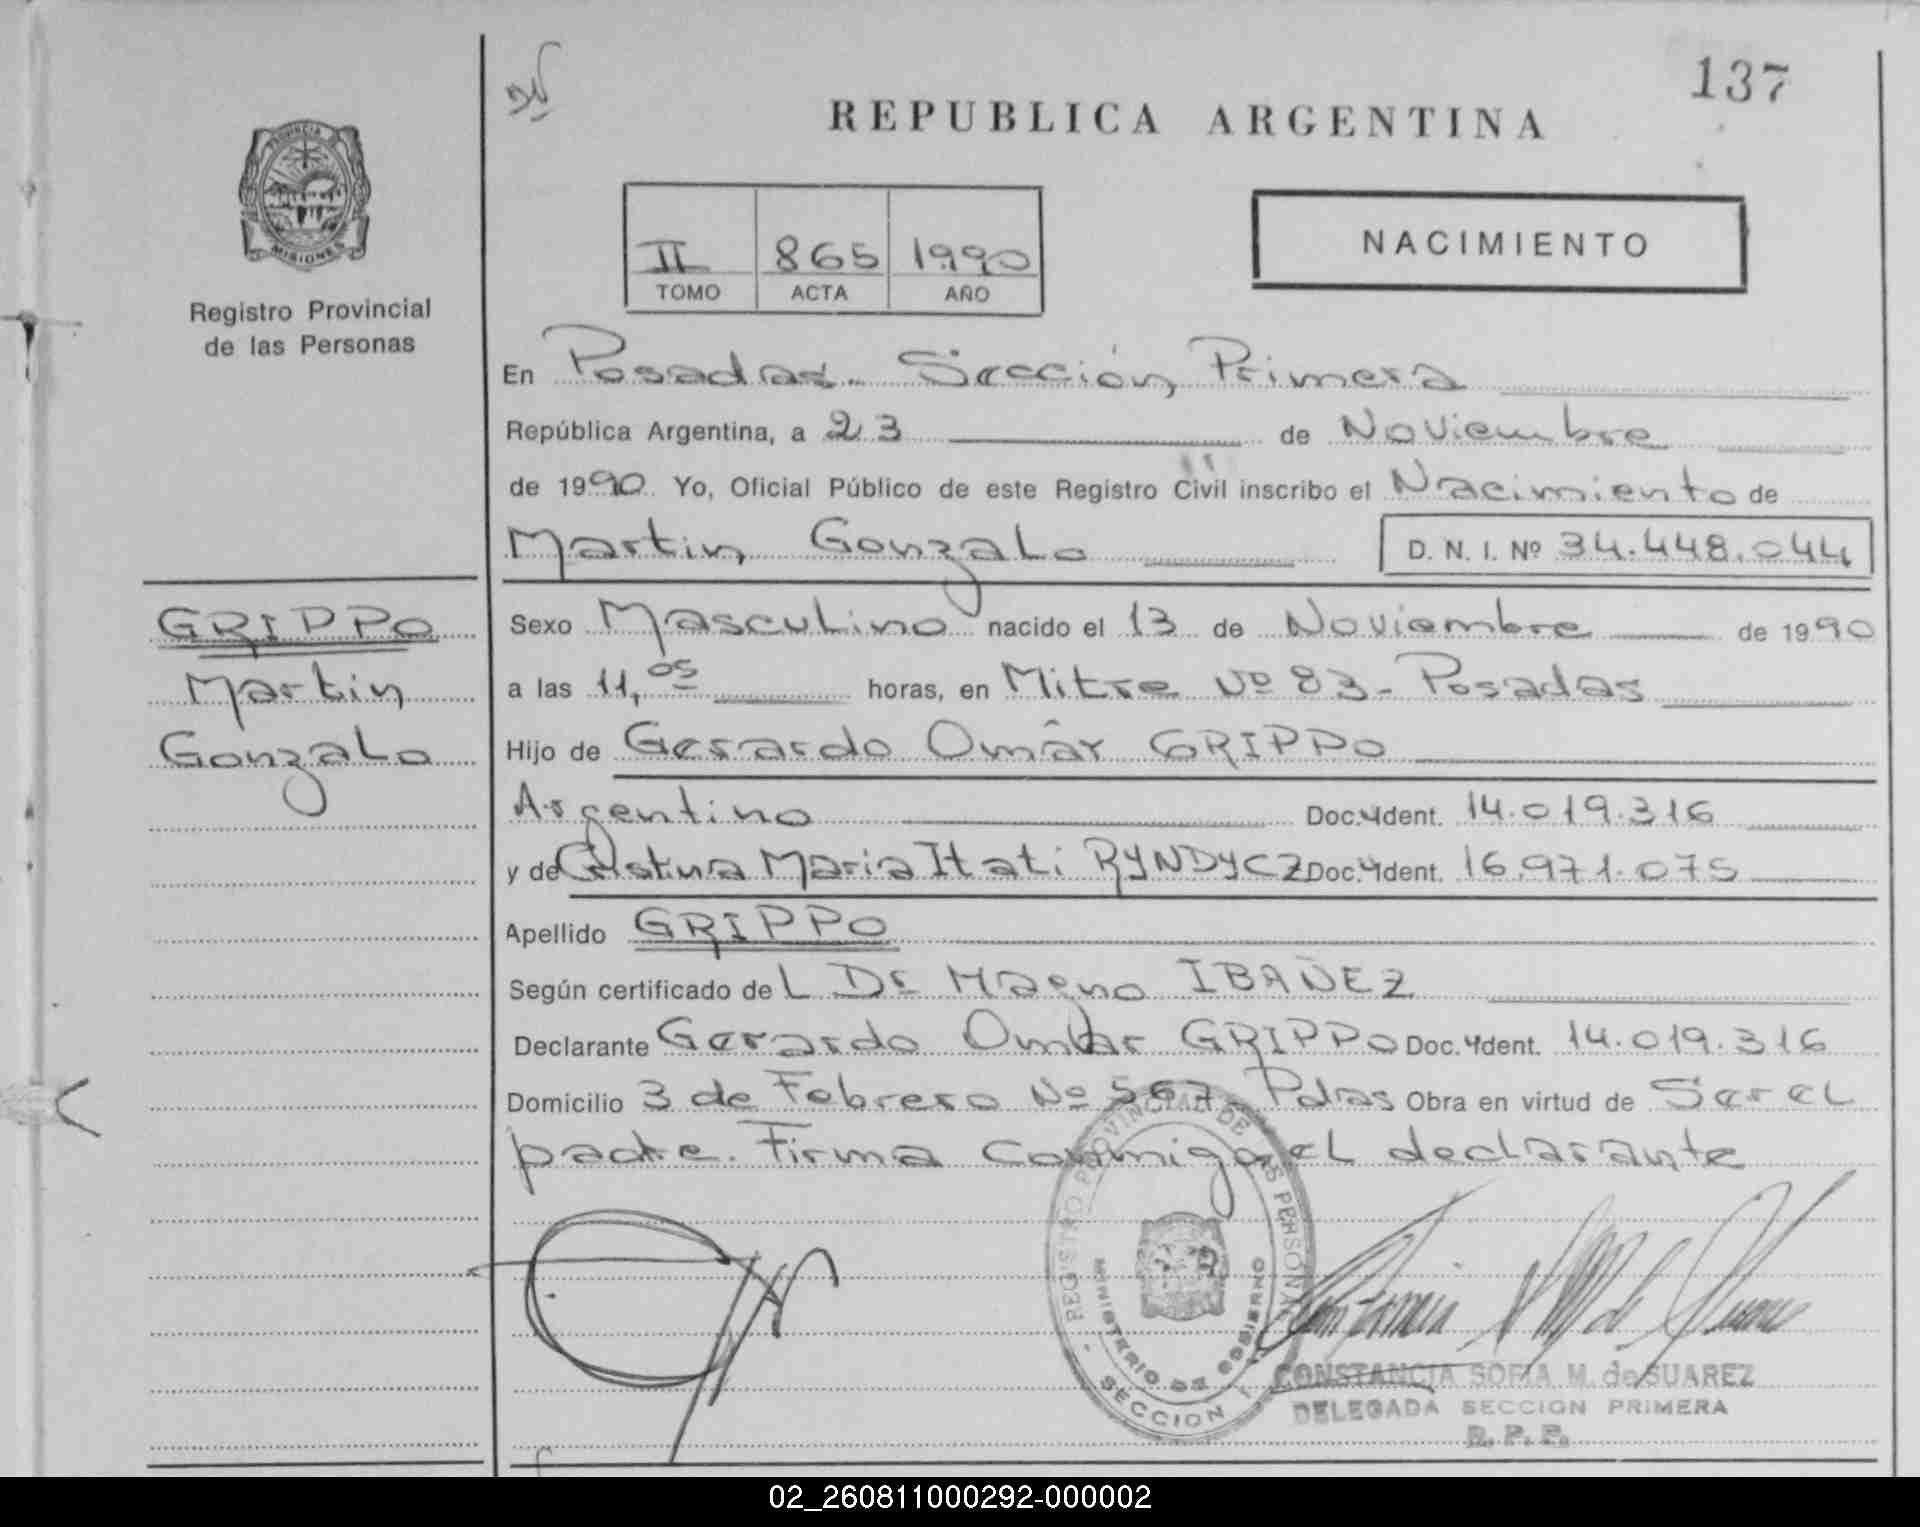 137
DN
REPUBLICA ARGENTINA
PROVINCIA
MISIONES
Registro Provincial
de las Personas
II 865 1990
TOMO ACTA AÑO
NACIMIENTO
En Posadas. Sección Primera
República Argentina, a 23 de Noviembre
de 1990 Yo, Oficial Público de este Registro Civil inscribo el Nacimiento de
Martin Gonzalo D. N. I. Nº 34.448.044
GRIPPO
Martin
Gonzalo
Sexo Masculino nacido el 13 de Noviembre de 1990
a las 11,05 horas, en Mitre Nº 83 - Posadas
Hijo de Gerardo Omar GRIPPO
Argentino Doc. Ident. 14.019.316
y de Cristina Maria Itati RYNDYCZ Doc. Ident. 16.971.075
Apellido GRIPPO
Según certificado del Dr Magno IBAÑEZ
Declarante Gerardo Omar GRIPPO Doc. Ident. 14.019.316
Domicilio 3 de Febrero Nº 567 - Pdas Obra en virtud de Ser el
padre. Firma conmigo el declarante
REGISTRO PROVINCIAL DE LAS PERSONAS
MINISTERIO DE GOBIERNO
SECCION 1
CONSTANCIA SOFIA M. de SUAREZ
DELEGADA SECCION PRIMERA
R. P. P.
02_260811000292-000002